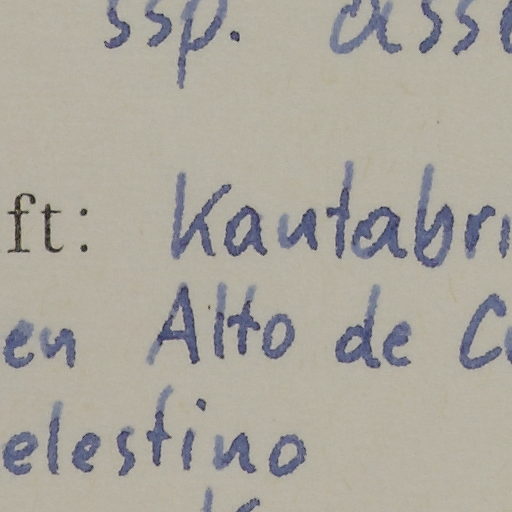 ssp. ass
ft: Kantabri
en Alto de C
elestino